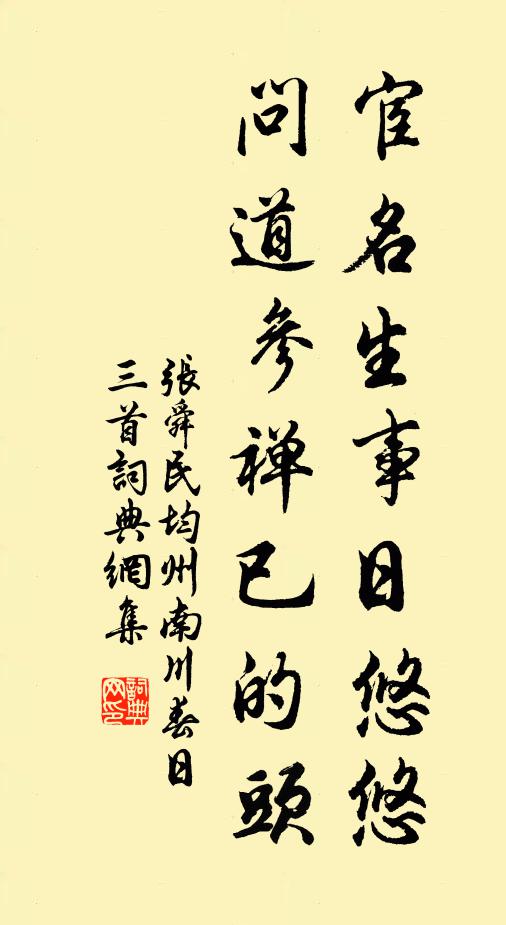 宦名生事日悠悠
問道參禅已的頭
張舜民均州南川春日
三首詞典網集
詞典
网印